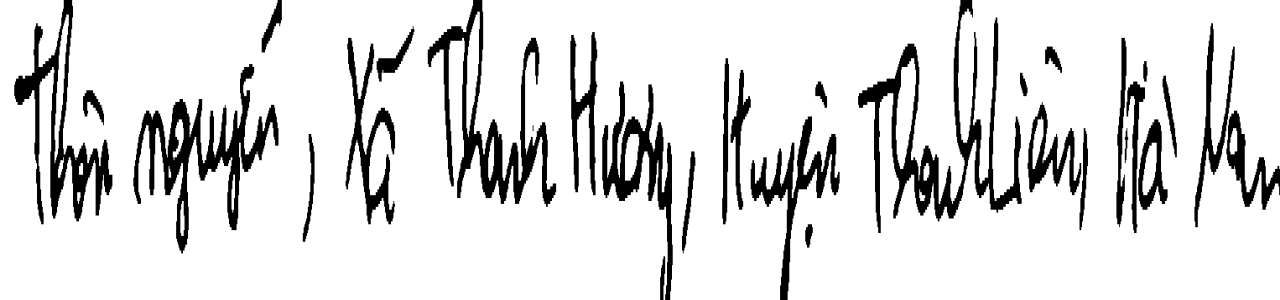 Thôn nguyễn, Xã Thanh Hương, Huyện Thanh Liêm, Hà Nam